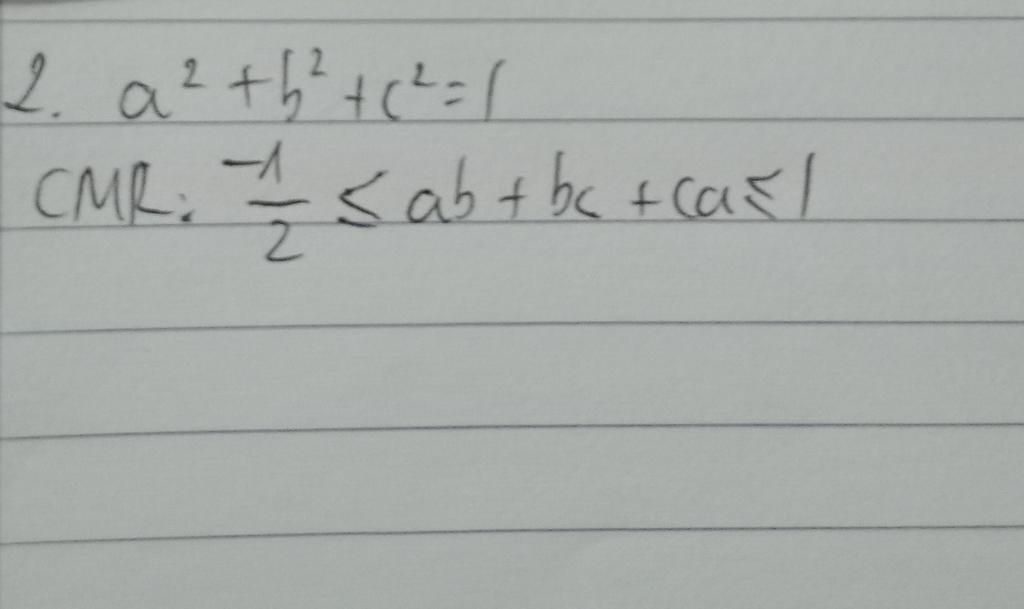 2. a² + b² + c² = 1
CMR: -1/2 ≤ ab + bc + ca ≤ 1